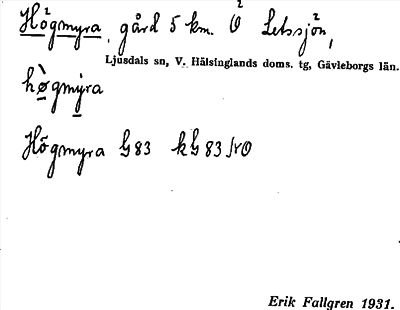 Högmyra, gård 5 km. O Letssjön,
Ljusdals sn, V. Hälsinglands doms. tg, Gävleborgs län.
hø̀gmýra
Högmyra G83 kG83 SvO
Erik Fallgren 1931.